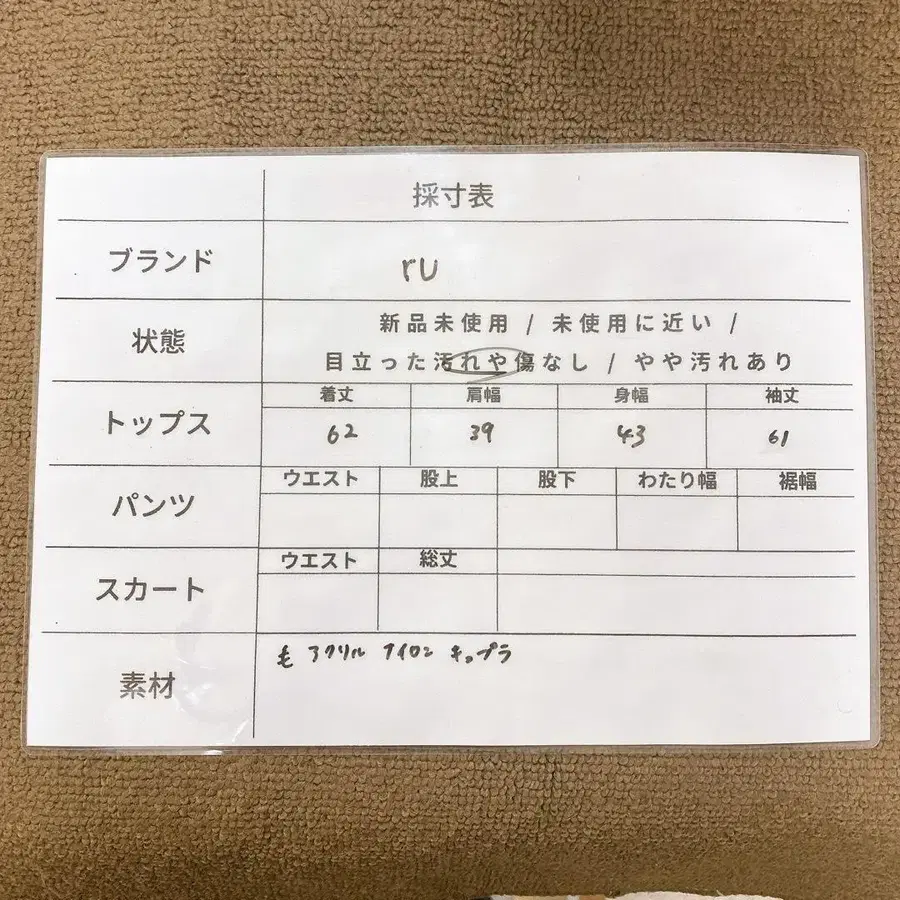 採寸表
ブランド ru
状態 新品未使用 / 未使用に近い /
目立った汚れや傷なし / やや汚れあり
トップス 着丈 肩幅 身幅 袖丈
62 39 43 61
パンツ ウエスト 股上 股下 わたり幅 裾幅
スカート ウエスト 総丈
素材 毛 アクリル ナイロン キュプラ